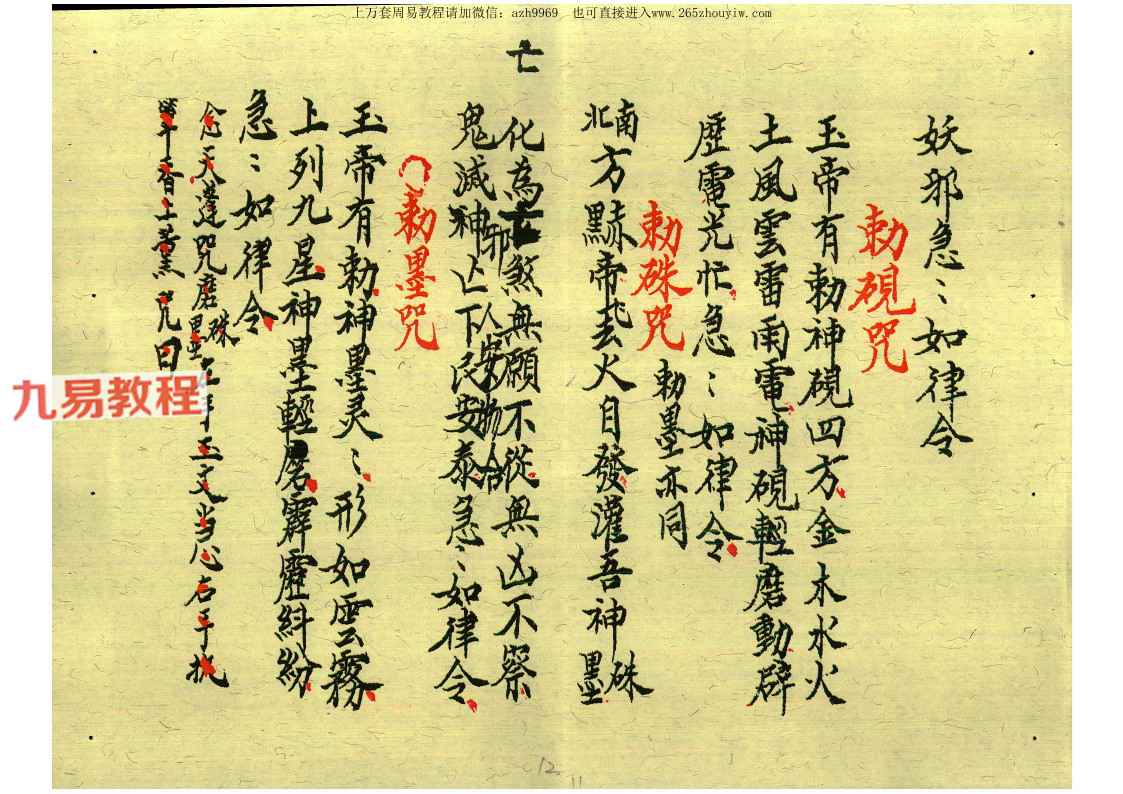 上万套周易教程请加微信：azh9969　也可直接进入www.265zhouyiw.com
亡
妖邪急〻如律令
勅硯咒
玉帝有勅神硯四方金木水火
土風雲雷雨電神硯輕磨動辟
歷電光忙急〻如律令
勅硃咒 勅墨亦同
南北方黙帝 火自發灌吾神硃墨
化為 煞無願不從無凶不察
鬼滅神亡下民安泰急〻如律令
邪 人安物合
勅墨咒
玉帝有勅神墨灵〻形如雲霧
上列九星神墨輕磨霹靂糾紛
急〻如律令
念天蓬咒磨硃墨 左手玉文当心右手执
香 咒曰
九易教程
12
11